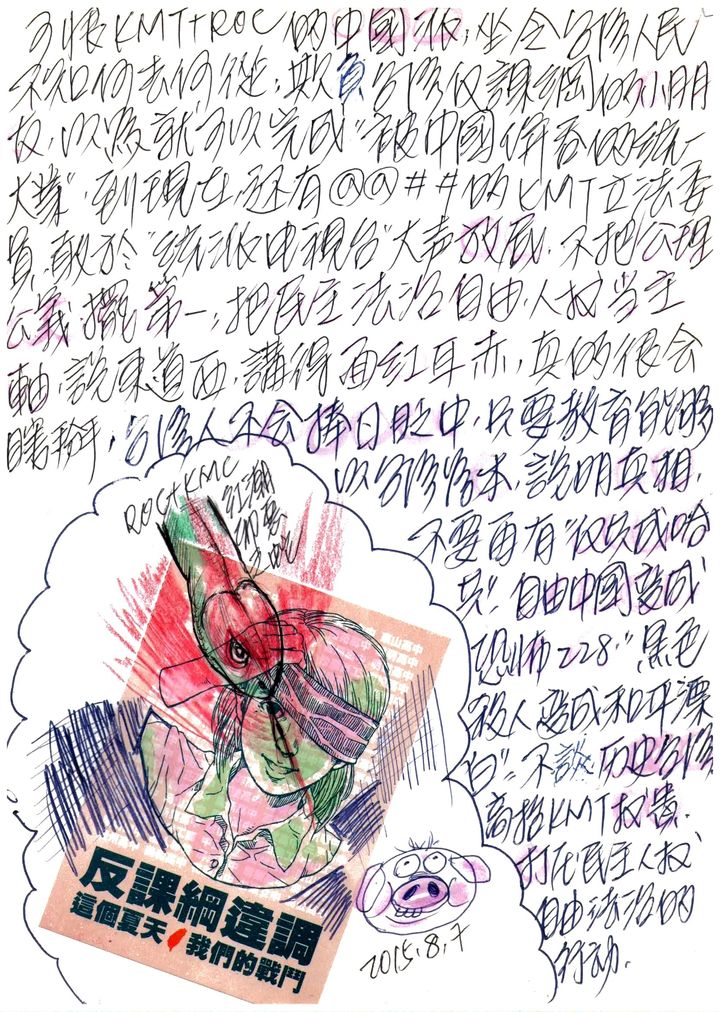 可恨KMT+ROC的中國了版,坐令台灣人民
不知何去何從,欺負台灣反課綱的小朋
友,以為就可以完成"被中國併吞的統一
大業",到現在,還有@@##的KMT立法委
員,敢於"統派中視台"大声放屁,不把公理
公義擺第一,把民主法治自由人权当主
軸,說東道西,講得面紅耳赤,真的很会
瞎掰,台灣人不会捧日貶中,只要教育能夠
以台灣為本,說明真相,
不要再有"仅共成哈
共",自由中國变成
恐怖228","黑色
殺人变成和平漂
白",不談历史台灣
高抬KMT权貴,
打在民主人权
自由法治的
行动.
ROC+KMC
紅潮
高中
反課綱違調
這個夏天 我們的戰鬥
2015.8.7